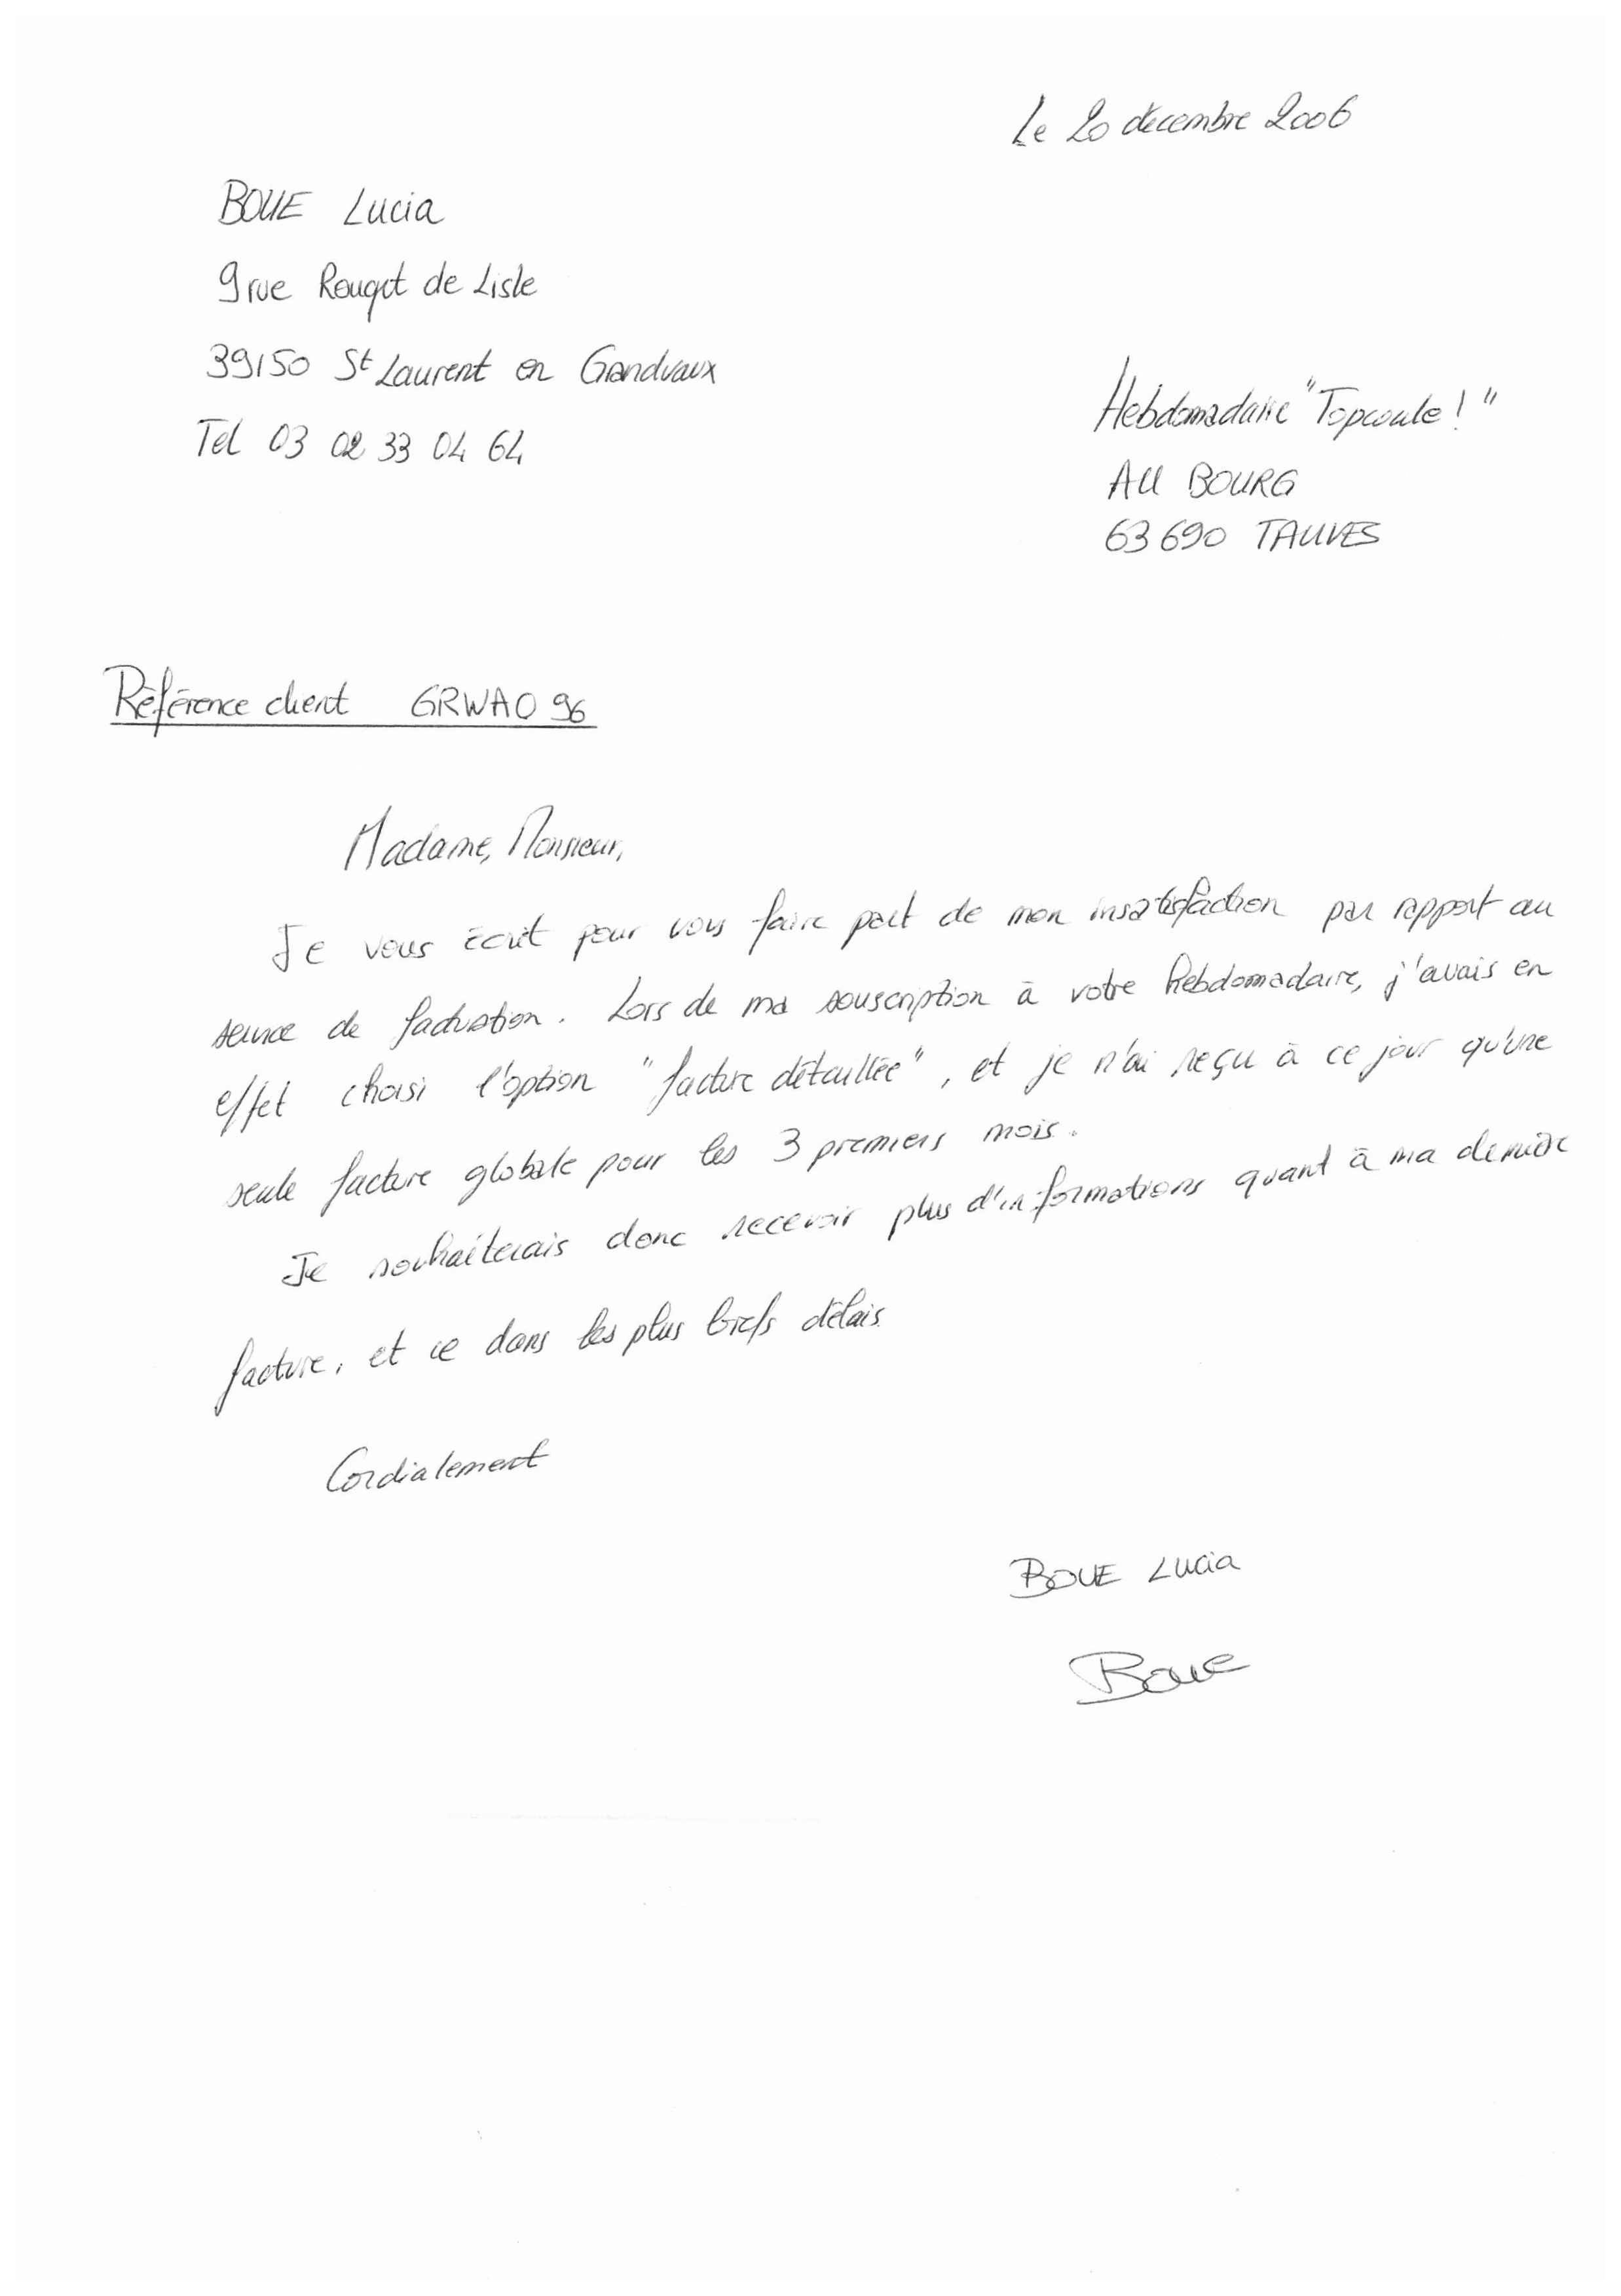 Le 20 décembre 2006
BOUE Lucia
9 rue Rouget de Lisle
39150 St Laurent en Grandvaux
Tel 03 02 33 04 64
Hebdomadaire "Topcoute!"
AU BOURG
63690 TAUVES
Référence client GRWAO 96
Madame, Monsieur,
Je vous écrit pour vous faire part de mon insatisfaction par rapport au
service de facturation. Lors de ma souscription à votre hebdomadaire, j'avais en
effet choisi l'option "facture détaillée", et je n'ai reçu à ce jour qu'une
seule facture globale pour les 3 premiers mois.
Je souhaiterais donc recevoir plus d'informations quant à ma dernière
facture, et ce dans les plus brefs délais.
Cordialement
BOUE Lucia
Boue